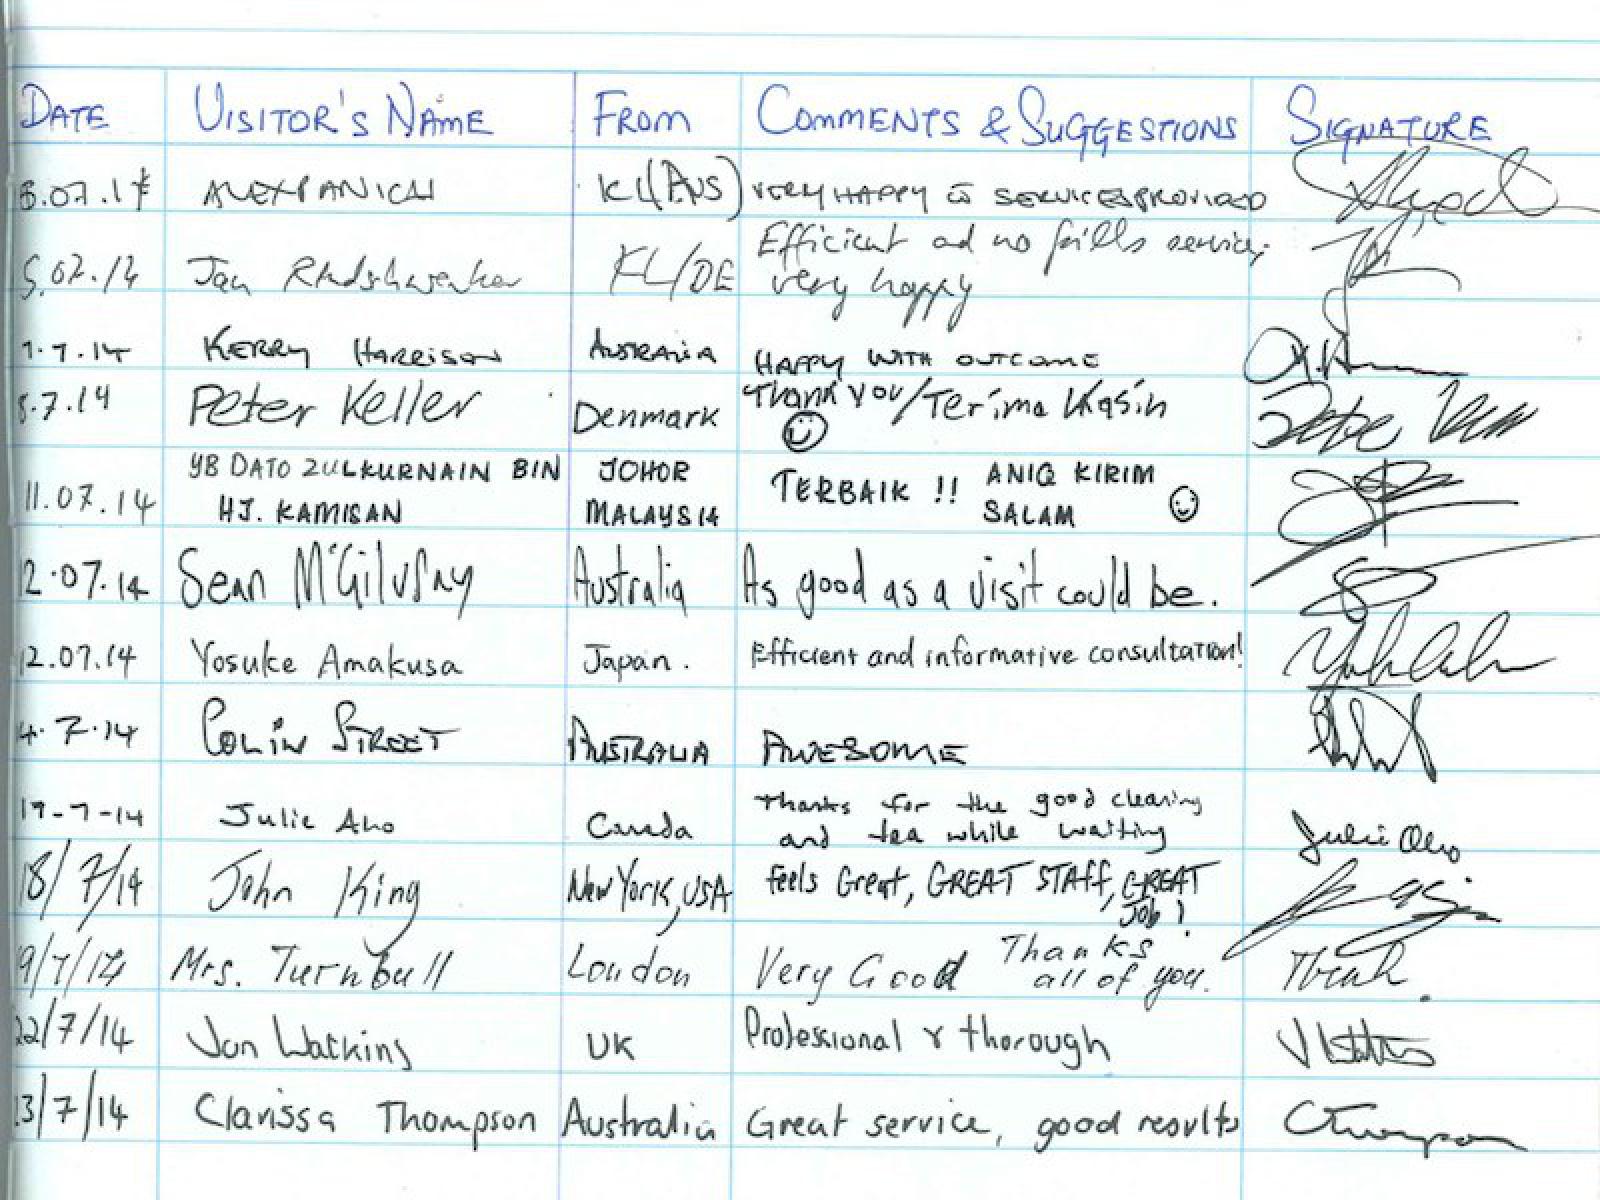 DATE VISITOR'S NAME FROM COMMENTS & SUGGESTIONS SIGNATURE
ALEX PANICH KL(AUS) VERY HAPPY c̄ SERVICES PROVIDED
Jan KL/DE Efficient ad no frills service,
very happy
7.7.14 KERRY HARRISON AUSTRALIA HAPPY WITH OUTCOME
.7.14 Peter Keller Denmark Thank you/Terima Kasih
11.07.14 YB DATO ZULKURNAIN BIN JOHOR TERBAIK !! ANIQ KIRIM
HJ. KAMISAN MALAYSIA SALAM
12.07.14 Sean McGilvray Australia As good as a visit could be.
12.07.14 Yosuke Amakusa Japan. Efficient and informative consultation!
4.7.14 COLIN STREET AUSTRALIA AWESOME
17-7-14 Julie Aho Canada Thanks for the good cleaning
and tea while waiting Julie Aho
18/7/14 John King New York, USA feels Great, GREAT STAFF, GREAT
Job!
19/7/14 Mrs. Turnbull London Very Good Thanks
all of you.
22/7/14 Jon Watkins UK Professional & thorough
23/7/14 Clarissa Thompson Australia Great service, good results CThompson